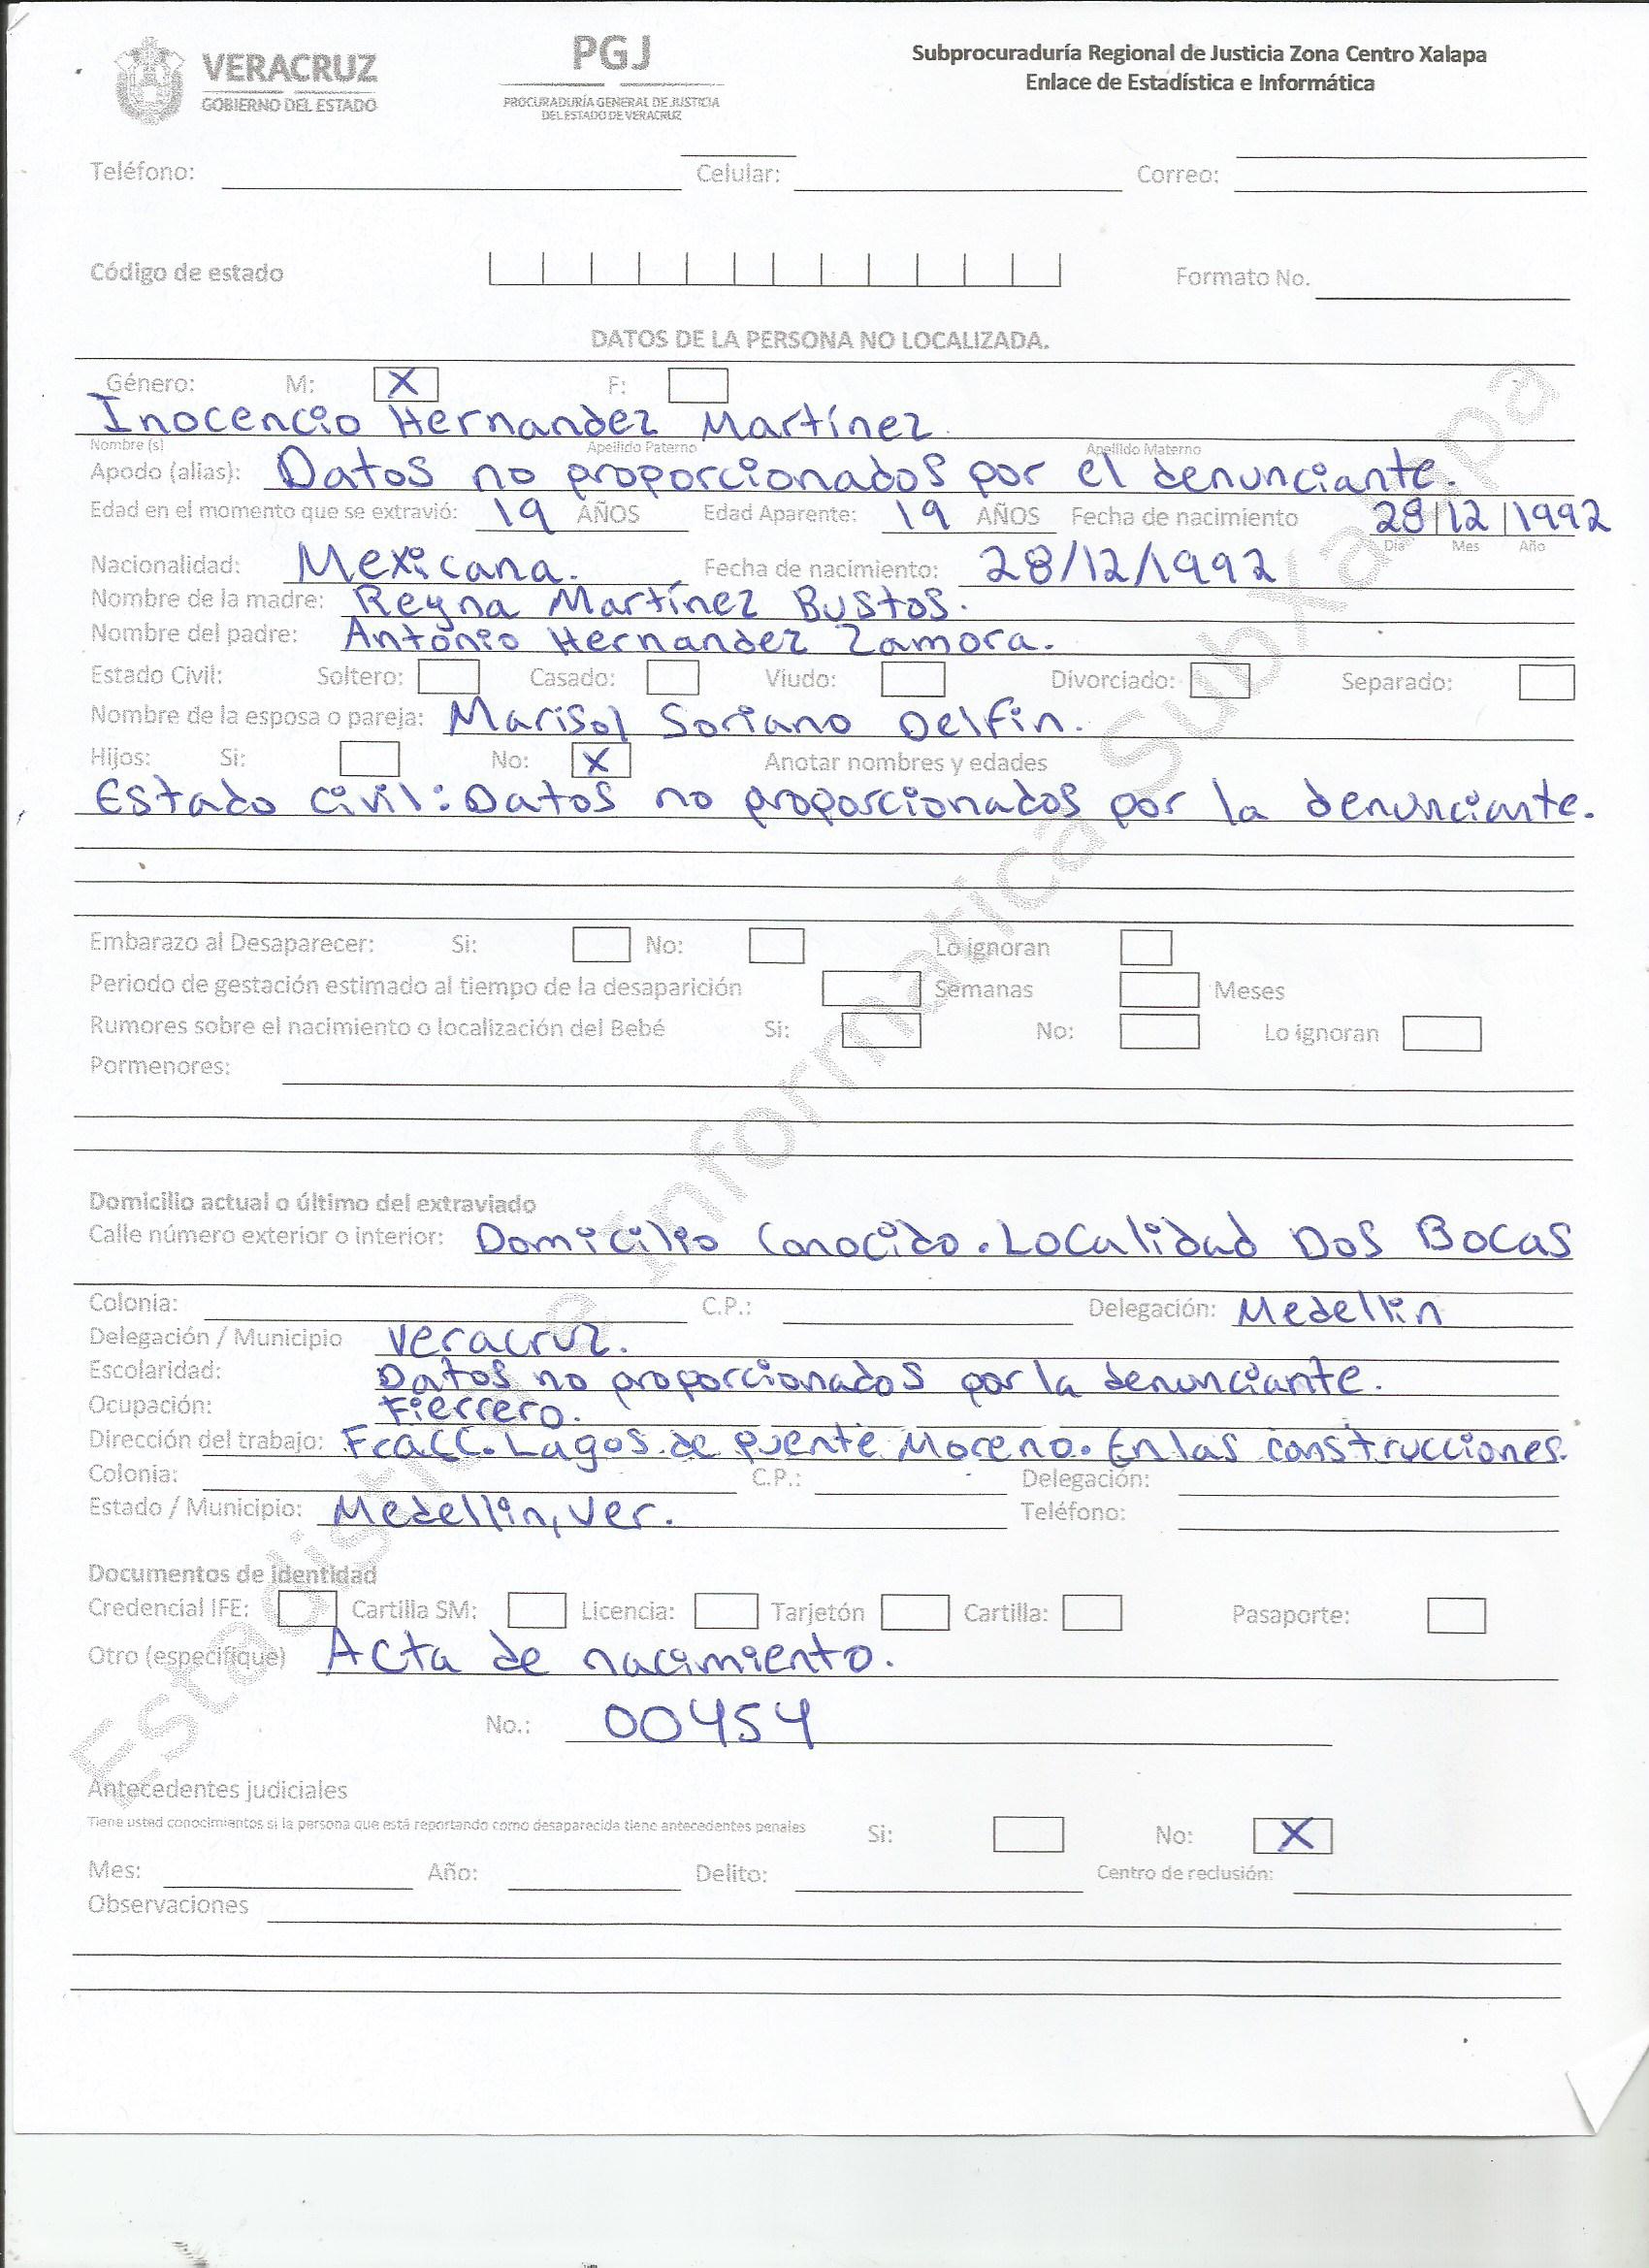 VERACRUZ
GOBIERNO DEL ESTADO
PGJ
PROCURADURÍA GENERAL DE JUSTICIA
DEL ESTADO DE VERACRUZ
Subprocuraduría Regional de Justicia Zona Centro Xalapa
Enlace de Estadística e Informática
Teléfono: Celular: Correo:
Código de estado Formato No.
DATOS DE LA PERSONA NO LOCALIZADA.
Género: M: X F:
Inocencio Hernandez Martínez
Nombre (s) Apellido Paterno Apellido Materno
Apodo (alias): Datos no proporcionados por el denunciante.
Edad en el momento que se extravió: 19 AÑOS Edad Aparente: 19 AÑOS Fecha de nacimiento 28/12/1992
Día Mes Año
Nacionalidad: Mexicana. Fecha de nacimiento: 28/12/1992
Nombre de la madre: Reyna Martínez Bustos.
Nombre del padre: Antonio Hernandez Zamora.
Estado Civil: Soltero: Casado: Viudo: Divorciado: Separado:
Nombre de la esposa o pareja: Marisol Soriano Delfin.
Hijos: Si: No: X Anotar nombres y edades
Estado civil: Datos no proporcionados por la denunciante.
Embarazo al Desaparecer: Si: No: Lo ignoran
Periodo de gestación estimado al tiempo de la desaparición Semanas Meses
Rumores sobre el nacimiento o localización del Bebé Si: No: Lo ignoran
Pormenores:
Domicilio actual o último del extraviado
Calle número exterior o interior: Domicilio Conocido. Localidad Dos Bocas
Colonia: C.P.: Delegación: Medellin
Delegación / Municipio Veracruz.
Escolaridad: Datos no proporcionados por la denunciante.
Ocupación: Fierrero.
Dirección del trabajo: Fracc. Lagos de puente Moreno. En las construcciones.
Colonia: C.P.: Delegación:
Estado / Municipio: Medellin, Ver. Teléfono:
Documentos de identidad
Credencial IFE: Cartilla SM: Licencia: Tarjetón Cartilla: Pasaporte:
Otro (especifique) Acta de nacimiento.
No.: 00454
Antecedentes judiciales
Tiene usted conocimientos si la persona que está reportando como desaparecida tiene antecedentes penales Si: No: X
Mes: Año: Delito: Centro de reclusión:
Observaciones
Estadística e Informatica SubXalapa